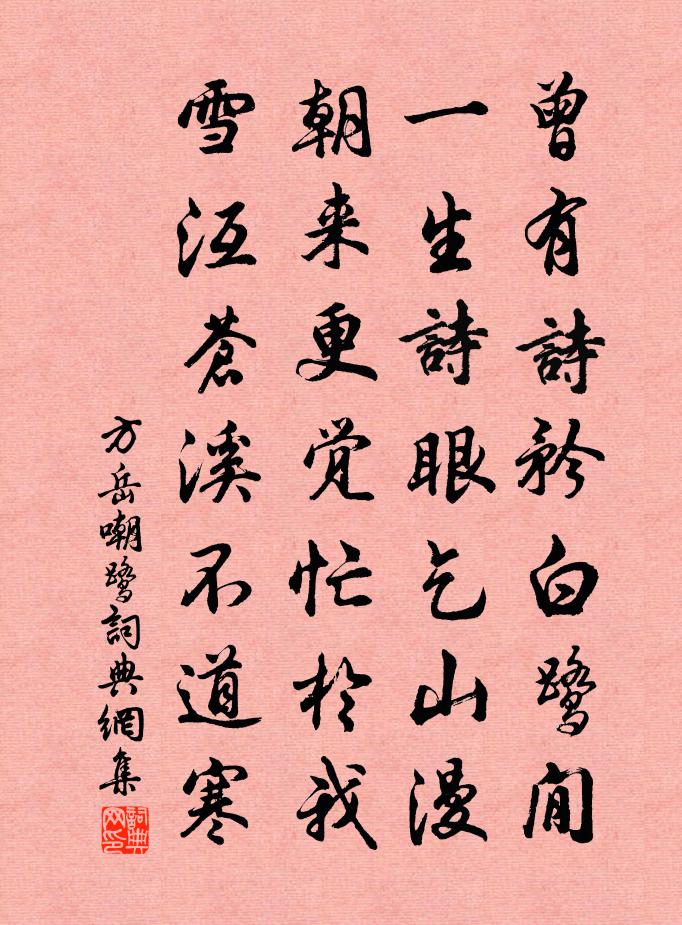 曾有詩矜白鹭閒
一生詩眼乞山漫
朝来更觉忙於我
雪沍蒼溪不道寒
方岳嘲鹭詞典網集
詞典网印